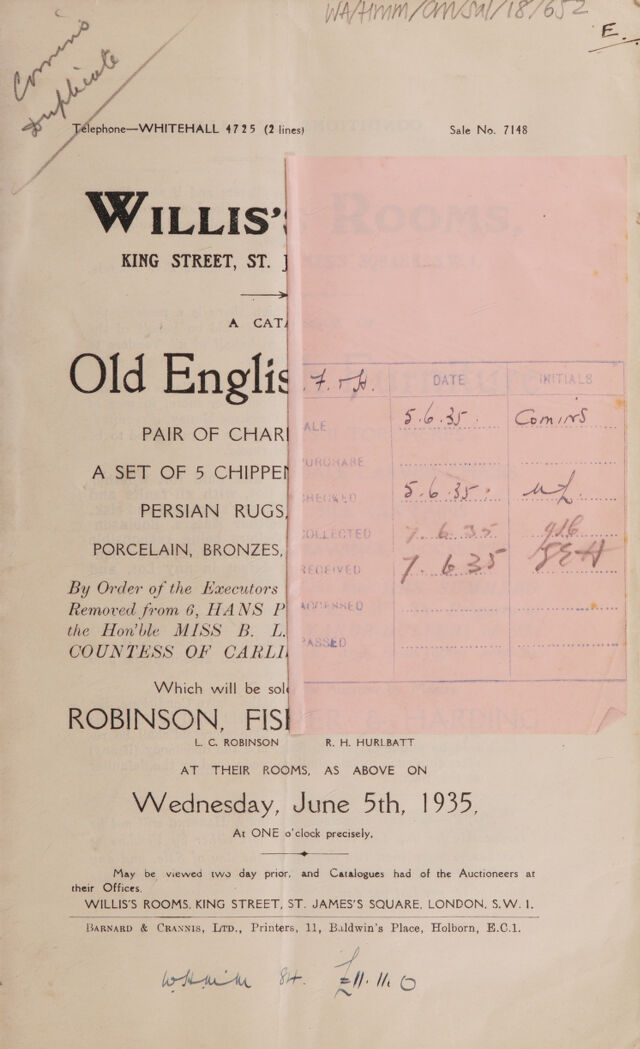 WA/HMM/CM/Sal/18/652
E.
Comins
Duplicate
Telephone—WHITEHALL 4725 (2 lines)
Sale No. 7148
WILLIS'S ROOMS,
KING STREET, ST.
A CAT
Old Englis
PAIR OF CHAR
A SET OF 5 CHIPPEN
PERSIAN RUGS,
PORCELAIN, BRONZES,
By Order of the Executors
Removed from 6, HANS P
the Hon'ble MISS B. L.
COUNTESS OF CARLI
Which will be sol
ROBINSON, FISHER & HARDING
L. C. ROBINSON R. H. HURLBATT
AT THEIR ROOMS, AS ABOVE ON
Wednesday, June 5th, 1935,
At ONE o'clock precisely.
May be viewed two day prior, and Catalogues had of the Auctioneers at
their Offices.
WILLIS'S ROOMS, KING STREET, ST. JAMES'S SQUARE, LONDON, S.W. 1.
BARNARD & CRANNIS, LTD., Printers, 11, Baldwin's Place, Holborn, E.C.1.
84. £11.11.0
F. & H. DATE INITIALS
ALE 5.6.35. Comins
PURCHASE
CHECKED 5.6.35.
COLLECTED 7.6.35
RECEIVED 7.6.35
ADDRESSED
PASSED